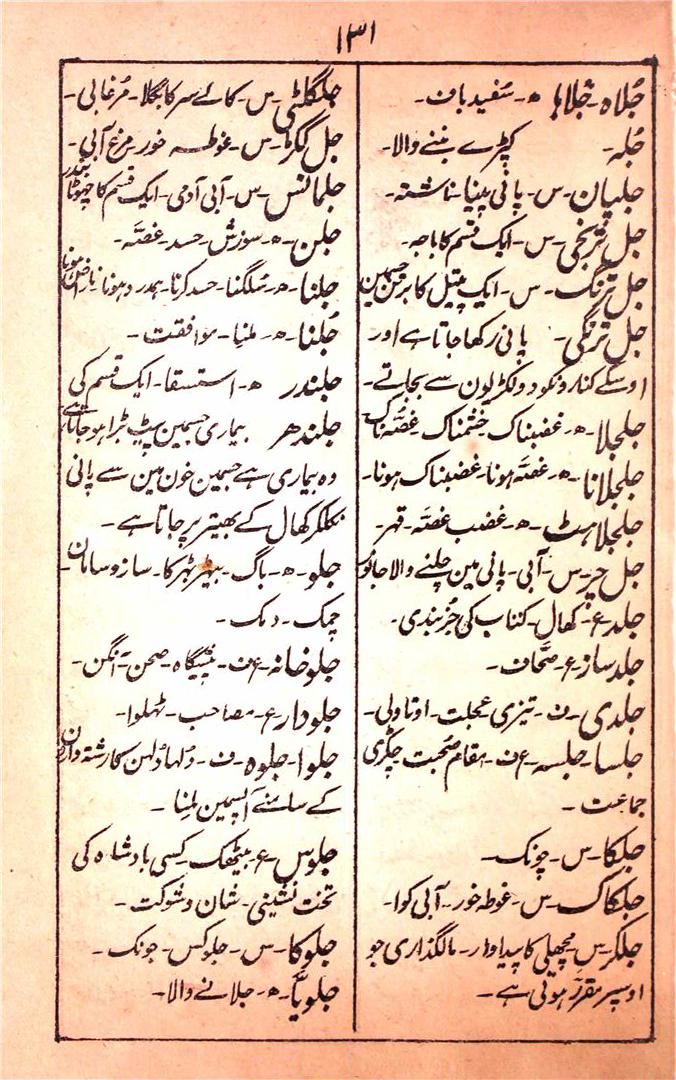 ۱۳۱
جُلاہ۔ جُلاہا ھ۔ سفید باف۔
جُلہ۔ کپڑے بننے والا۔
جلپان۔ س۔ پانی پینا۔ ناشتہ۔
جل ترنجی۔ س۔ ایک قسم کا باجہ۔
جل ترنگ۔ س۔ ایک پیتل کا برتن جسمین
جل ترنگی۔ پانی رکھا جاتا ہے اور
اوسکے کنارونکو دو لکڑیون سے بجاتے۔
جلجلا۔ ھ۔ غضبناک۔ خشمناک۔ غصّہ ناک
جلجلانا۔ ھ۔ غصّہ ہونا۔ غضبناک ہونا۔
جلجلاہٹ۔ ھ۔ غضب غصّہ۔ قہر۔
جل چر۔ س۔ آبی۔ پانی مین چلنے والا جانور
جلد۔ ع۔ کھال۔ کتاب کی جُزبندی۔
جلد ساز۔ ع۔ صحّاف۔
جلدی۔ ف۔ تیزی عجلت۔ اوتاولی۔
جلسا۔ جلسہ۔ ع ف۔ مقام صُحبت چکری
جماعت۔
جلکا۔ س۔ جونک۔
جلکاک۔ س۔ غوطہ خور۔ آبی کوا۔
جلکر۔ س۔ مچھلی کا پیداوار۔ مالگذاری جو
اوسپر مقرّر ہوتی ہے۔
جلگلٹی۔ س۔ کالے سر کا بگلا۔ مُرغابی۔
جل ککڑا۔ س۔ غوطہ خور۔ مرغ آبی۔
جلمانس۔ س۔ آبی آدمی۔ ایک قسم کا چھوٹا بندر
جلن۔ ھ۔ سوزش۔ حسد۔ غصّہ۔
جلنا۔ ھ۔ سُلگنا۔ حسد کرنا۔ ہمدرد ہونا۔ ناراض ہونا
جُلنا۔ ھ۔ ملنا۔ موافقت۔
جلندر ھ۔ استسقا۔ ایک قسم کی
جلندھر بیماری جسمین پیٹ بڑا ہو جاتا ہے
وہ بیماری ہے جسمین خون مین سے پانی
نکلکر کھال کے بھیتر پر جاتا ہے۔
جلو۔ ھ۔ باگ۔ بھڑبھڑکا۔ ساز و سامان۔
چمک۔ دمک۔
جلوخانہ۔ ع ف۔ پیشگاہ۔ صحن۔ آنگن۔
جلودار۔ ع۔ مصاحب۔ ٹہلوا۔
جلوا۔ جلوہ۔ ف۔ دُلہا دُلہن کا رشتہ دارون
کے سامنے آپسمین لمنا۔
جلوس۔ ع۔ بیٹھک۔ کسی بادشاہ کی
تخت نشینی۔ شان و شوکت۔
جلوکا۔ س۔ جلوکس۔ جونک۔
جلویّا۔ ھ۔ جلانے والا۔